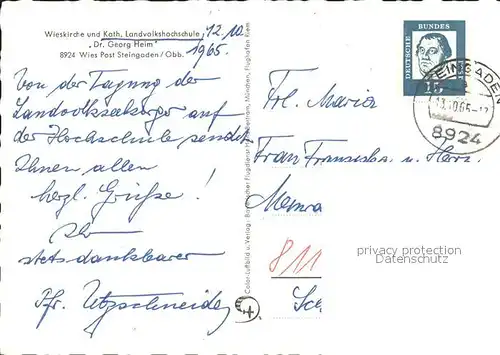 Wieskirche und Kath. Landvolkshochschule
„Dr. Georg Heim"
8924 Wies Post Steingaden/Obb.
12.10.
1965.
Von der Tagung der
Landvolkseelsorger auf
der Hochschule sendet
Ihnen allen
herzl. Grüße!
Ihr
stets dankbarer
Pfr. Utzschneider
Color-Luftbild u. Verlag: Bayerischer Flugdienst
München, Flughafen Riem
DEUTSCHE BUNDES
15
STEINGADEN
13.10.65-12
8924
Frl. Maria
Frau Franziska u. Herz.
811
privacy protection
Datenschutz